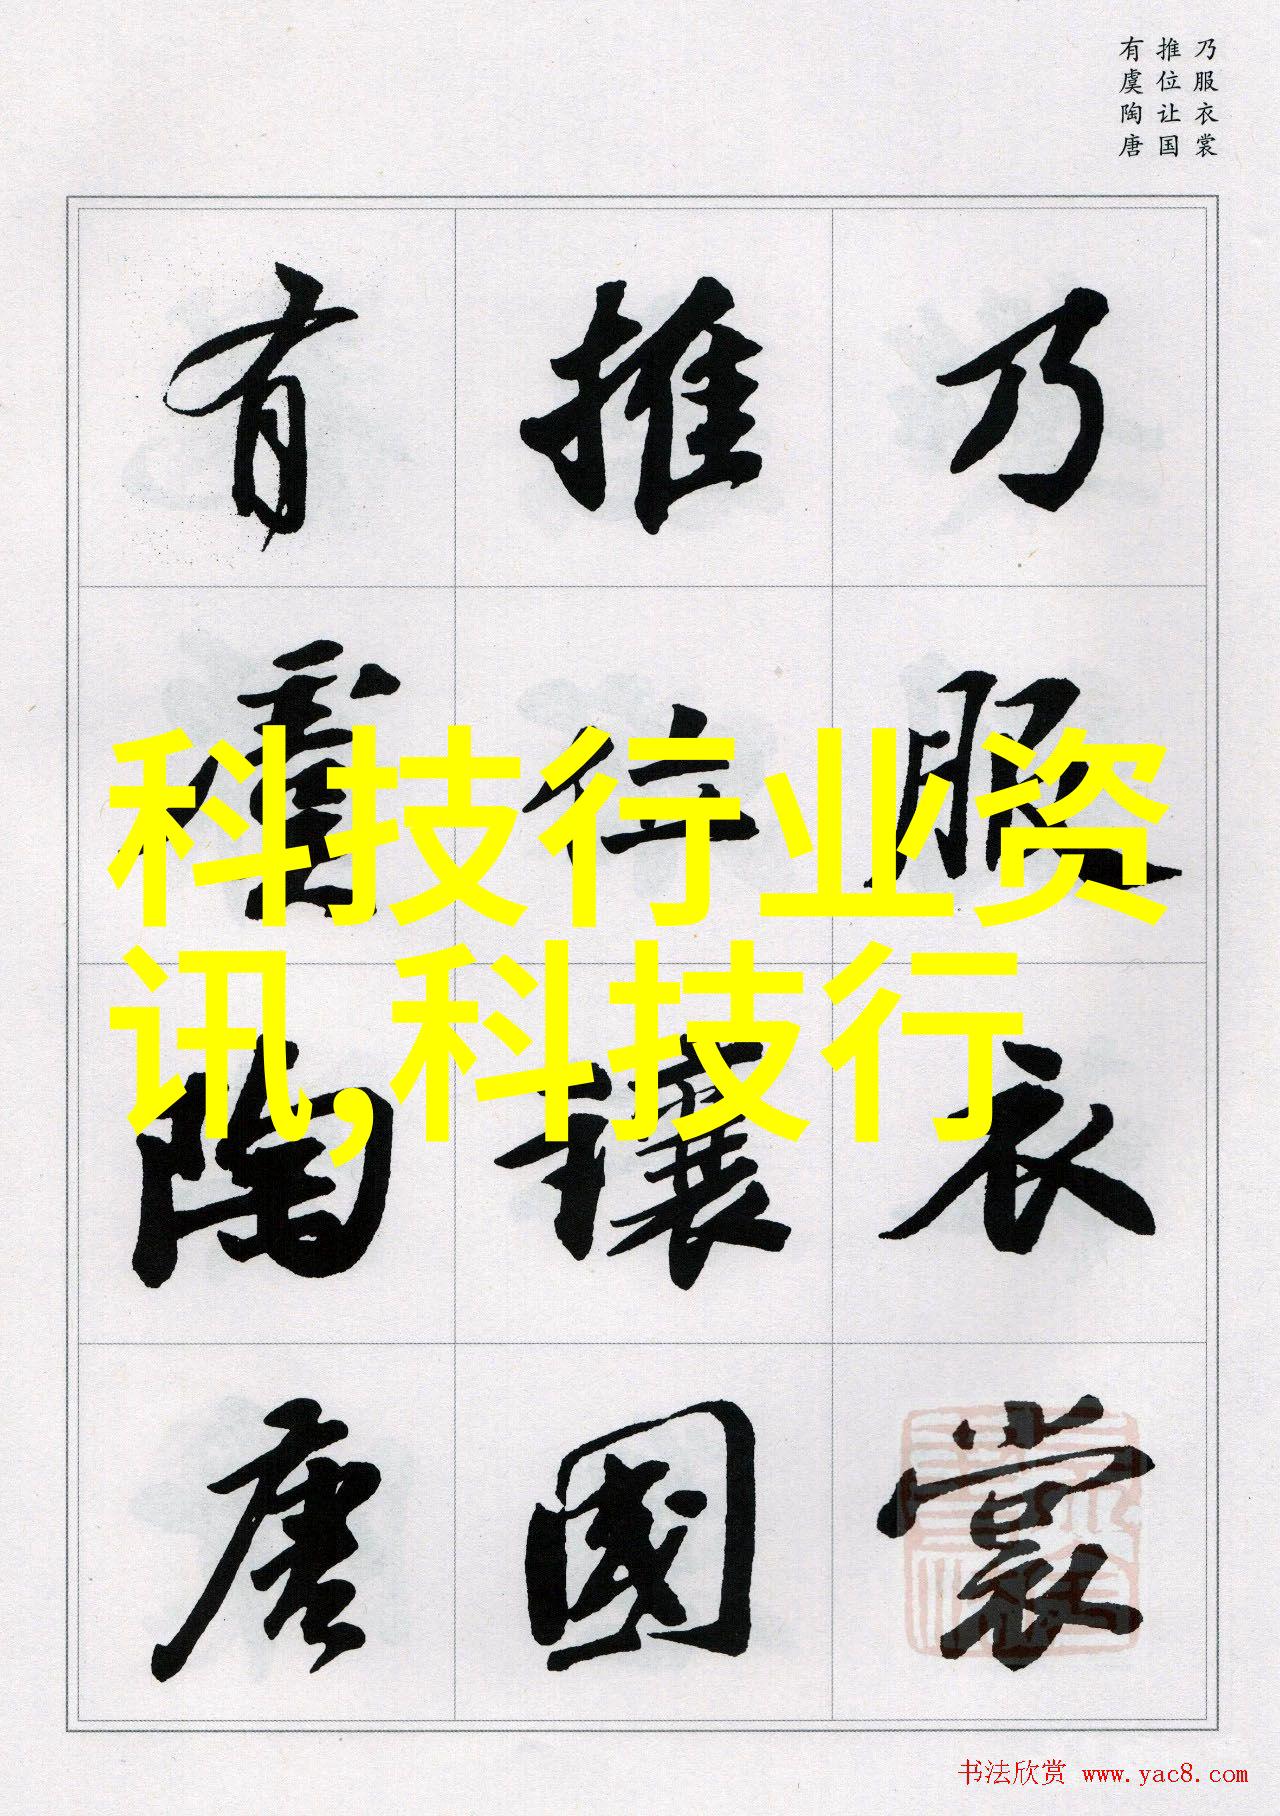 乃服衣裳
推位让国
有虞陶唐
乃服衣裳
推位讓國
有虞陶唐
科技行业资
讯,科技行
书法欣赏 www.yac8.com